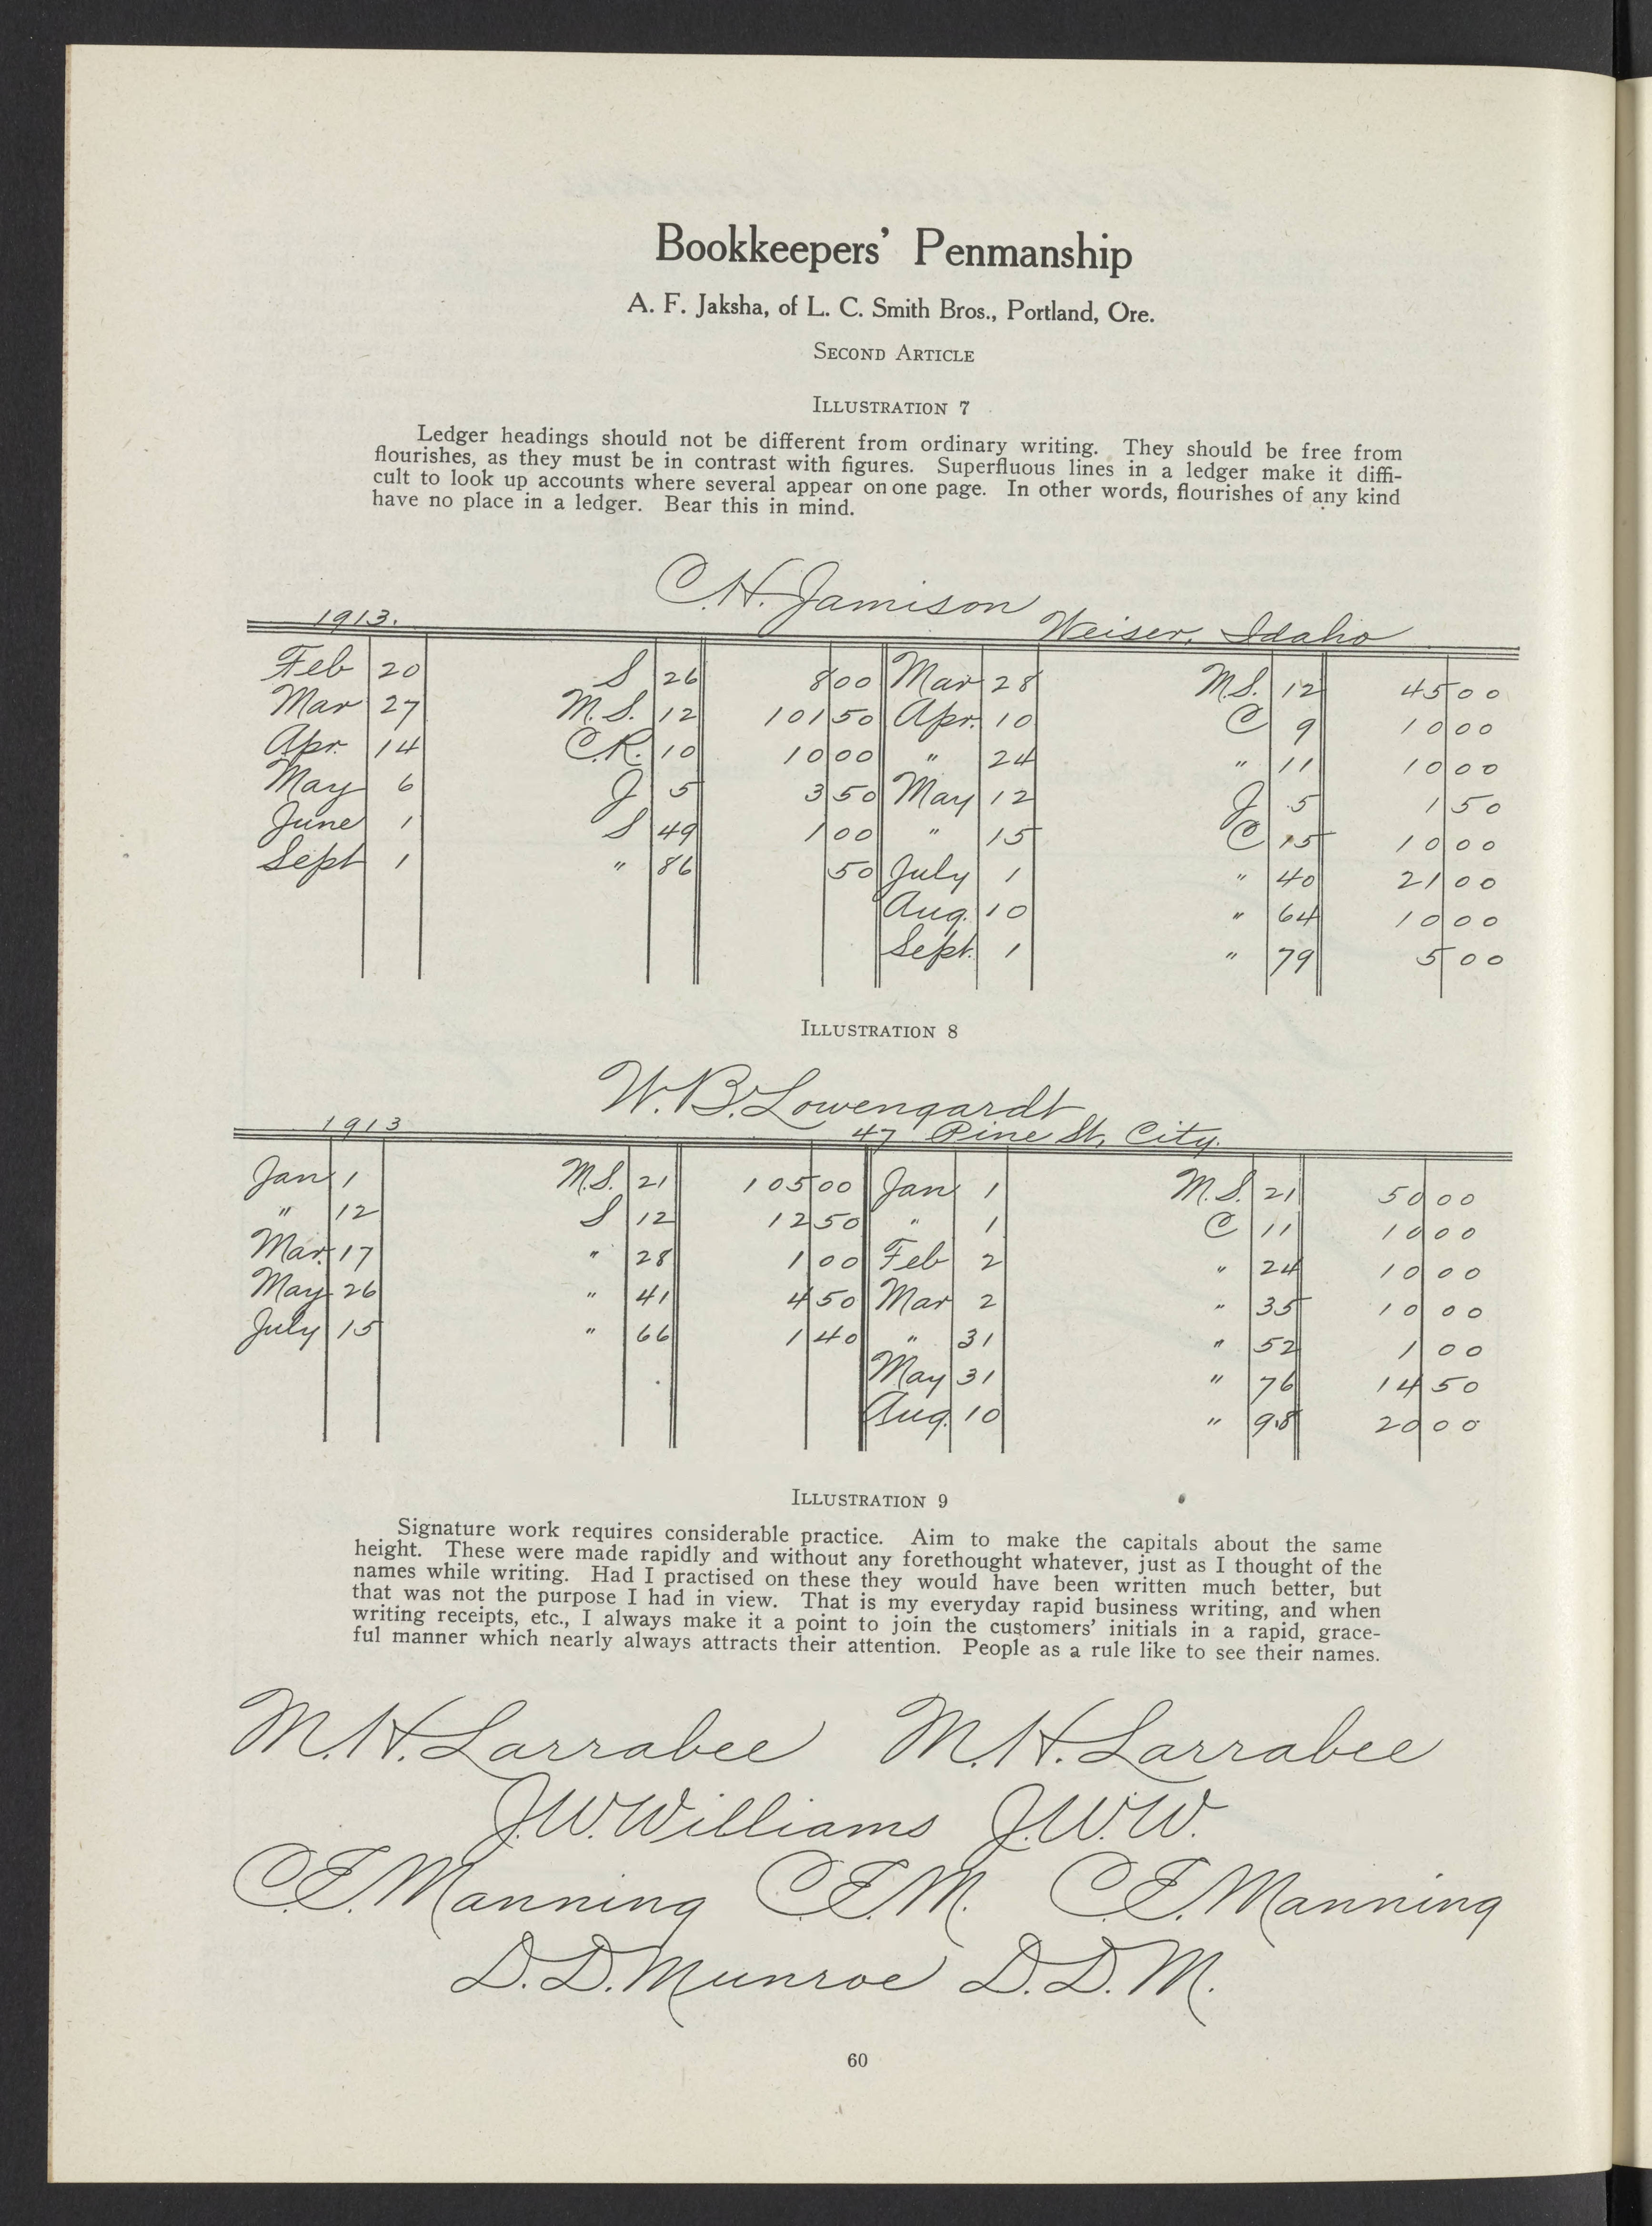 Bookkeepers' Penmanship
A. F. Jaksha, of L. C. Smith Bros., Portland, Ore.
SECOND ARTICLE
ILLUSTRATION 7
Ledger headings should not be different from ordinary writing. They should be free from
flourishes, as they must be in contrast with figures. Superfluous lines in a ledger make it diffi-
cult to look up accounts where several appear on one page. In other words, flourishes of any kind
have no place in a ledger. Bear this in mind.
C. H. Jamison
1913. Weiser, Idaho
Feb 20 S 26 8 00 Mar 28 M.S. 12 45 00
Mar 27 M.S. 12 101 50 Apr. 10 C 9 10 00
Apr. 14 C.R. 10 10 00 " 24 " 11 10 00
May 6 J 5 3 50 May 12 J 5 1 50
June 1 S 49 1 00 " 15 C 15 10 00
Sept 1 " 86 50 July 1 " 40 21 00
Aug. 10 " 64 10 00
Sept. 1 " 79 5 00
ILLUSTRATION 8
W. B. Lowengardt
1913 47 Pine St, City.
Jan 1 M.S. 21 105 00 Jan 1 M.S. 21 50 00
" 12 S 12 12 50 " 1 C 11 10 00
Mar. 17 " 28 1 00 Feb 2 " 24 10 00
May 26 " 41 4 50 Mar 2 " 35 10 00
July 15 " 66 1 40 " 31 " 52 1 00
May 31 " 76 14 50
Aug. 10 " 98 20 00
ILLUSTRATION 9
Signature work requires considerable practice. Aim to make the capitals about the same
height. These were made rapidly and without any forethought whatever, just as I thought of the
names while writing. Had I practised on these they would have been written much better, but
that was not the purpose I had in view. That is my everyday rapid business writing, and when
writing receipts, etc., I always make it a point to join the customers' initials in a rapid, grace-
ful manner which nearly always attracts their attention. People as a rule like to see their names.
M. H. Larrabee M. H. Larrabee
J. W. Williams J. W. W.
C. E. Manning C. E. M. C. E. Manning
D. D. Munroe D. D. M.
60